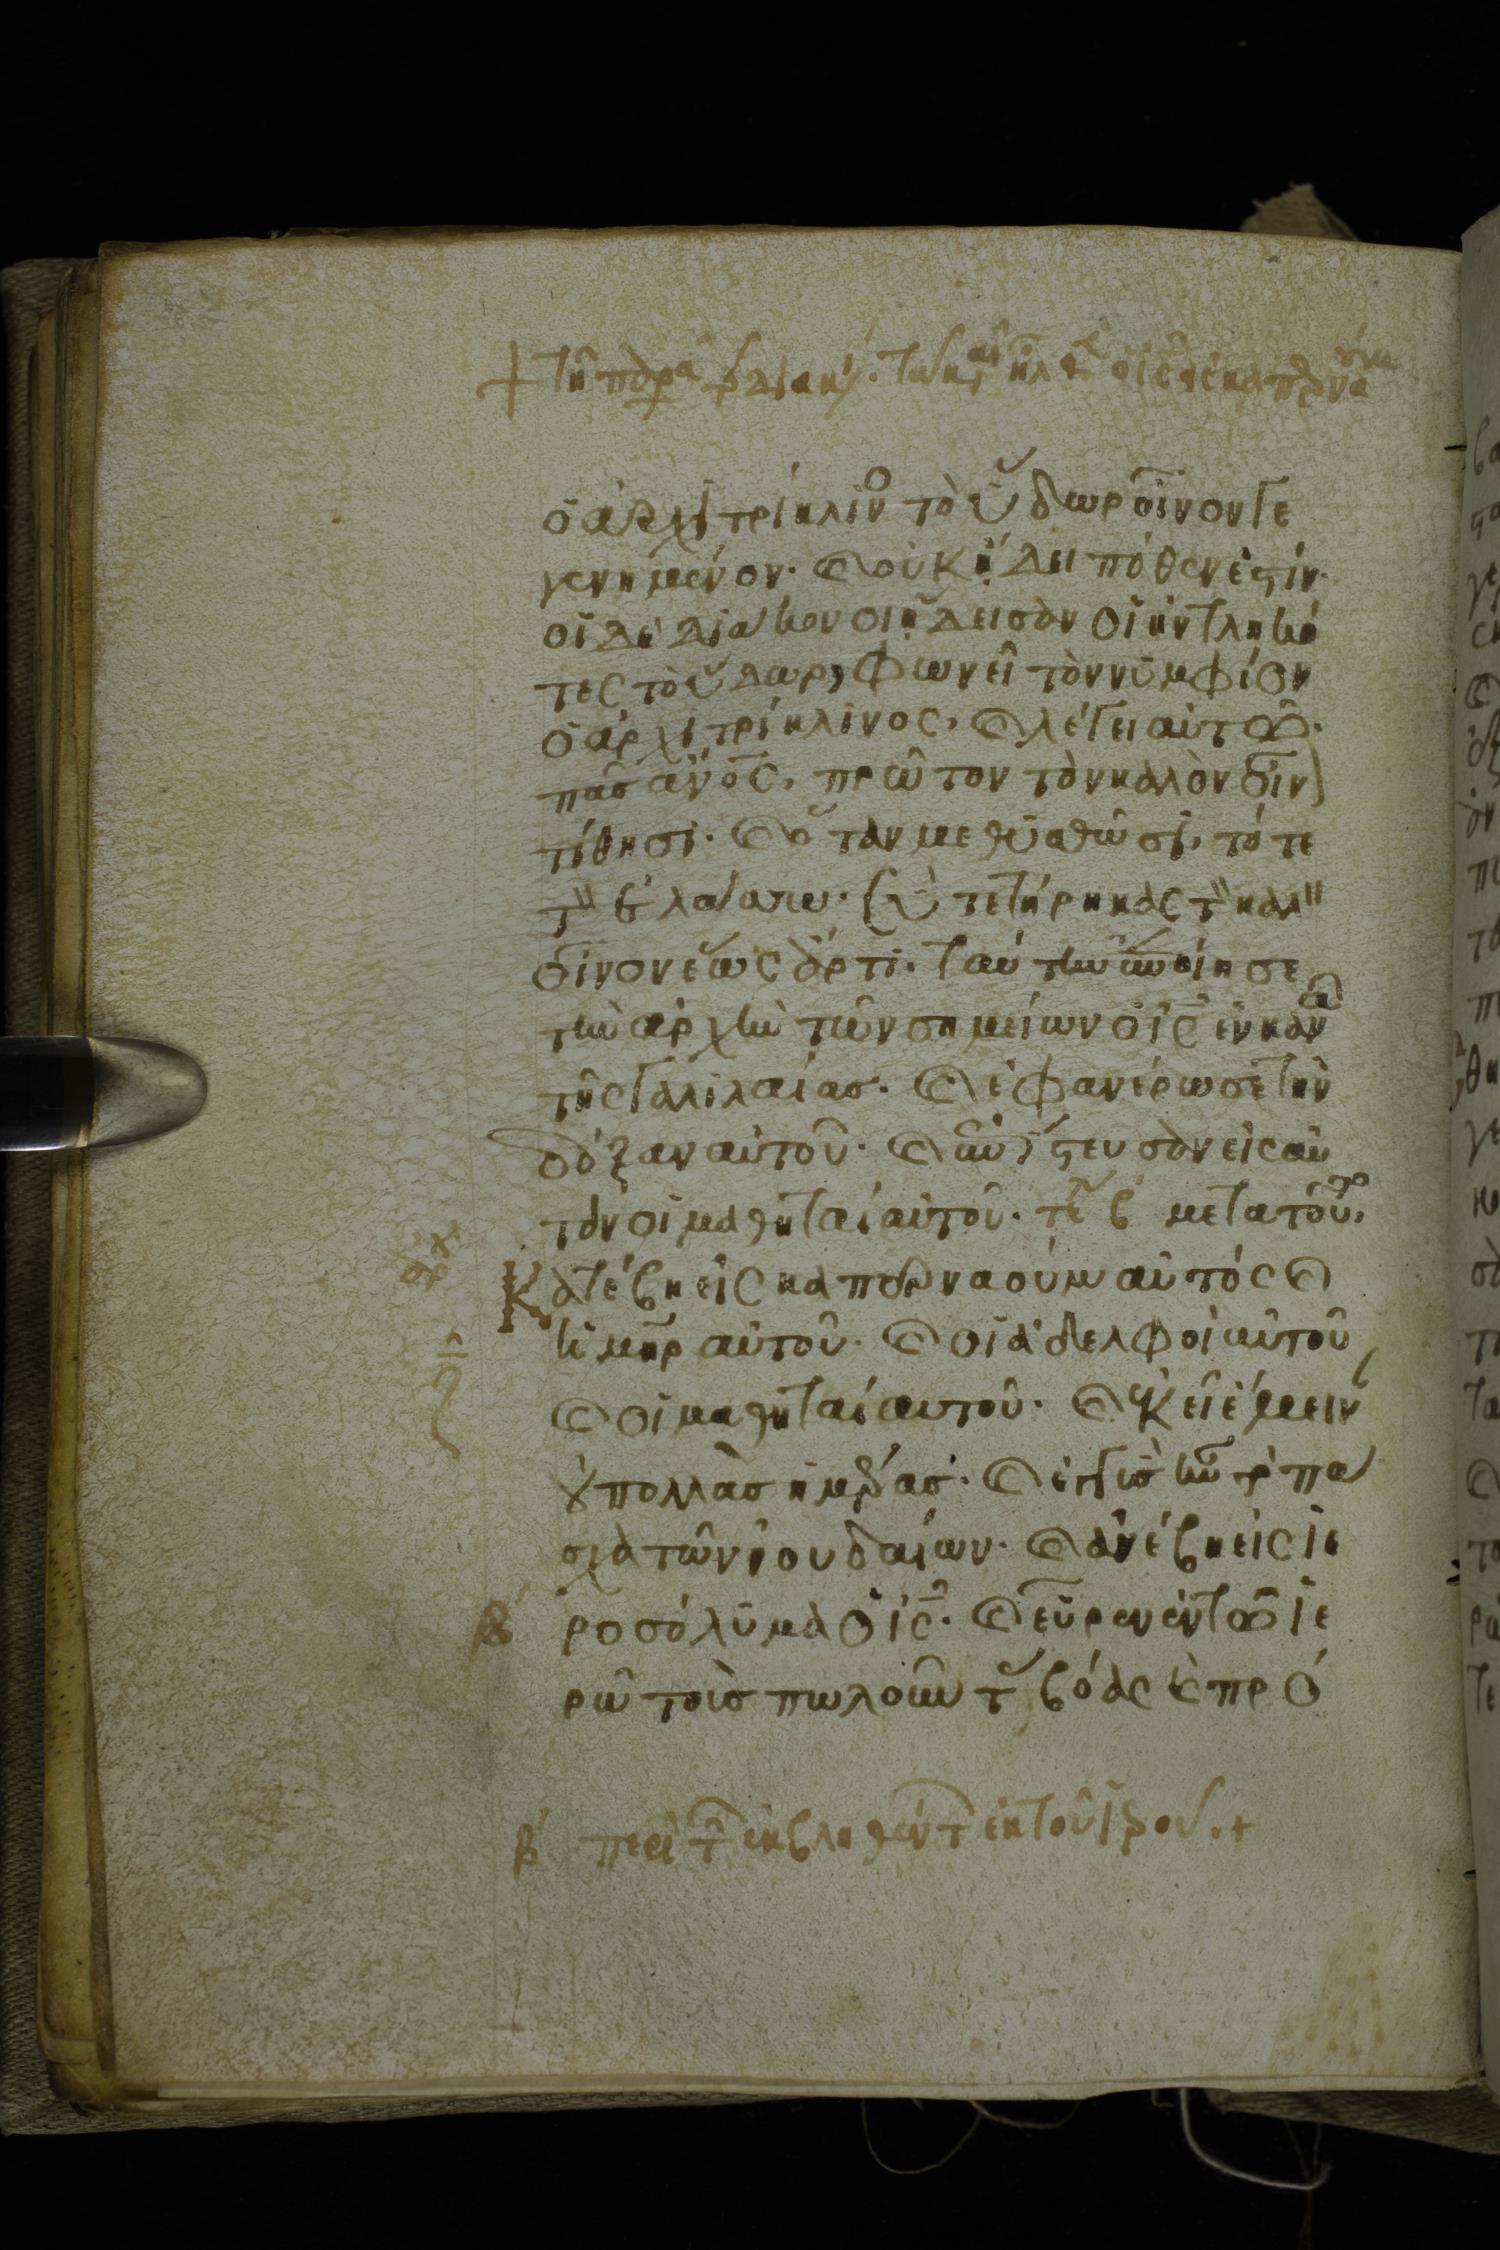 ὁ ἀρχιτρίκλινο τὸ ὕδωρ οἶνον γε
γενημένον. καὶ οὐκ ἤδει πόθεν ἐστίν.
οἱ δὲ διάκονοι ἤδεισαν οἱ ἠντληκό
τες τὸ ὕδωρ, φωνεῖ τὸν νυμφίον
ὁ ἀρχιτρίκλινος, καὶ λέγει αὐτῶ.
πᾶς ἀνος, πρῶτον τὸν καλὸν οἶν
τίθησι. καὶ ὅταν μεθυσθῶσι, τότε
τ ἐλάσσω. σὺ τετήρηκας τ καλ
οἶνον ἕως ἄρτι. ταύτην ἐποίησε
τὴν ἀρχὴν τῶν σημείων ὁ ις ἐν κανᾶ
τῆς γαλιλαίας. καὶ ἐφανέρωσε τὴν
δόξαν αὐτοῦ. καὶ ἐπίστευσαν εἰς αὐ
τὸν οἱ μαθηταὶ αὐτοῦ. τε β μετὰ τοῦτο
ἀρχ
Κατέβη εἰς καπερναοὺμ αὐτὸς καὶ
ἡ μηρ αὐτοῦ. καὶ οἱ ἀδελφοὶ αὐτοῦ
καὶ οἱ μαθηταὶ αὐτοῦ. καὶ ἐκεῖ ἔμειν
οὐ πολλὰς ἡμέρας. καὶ ἐγγὺς ἦν τὸ πά
σχα τῶν ἰουδαίων. καὶ ἀνέβη εἰς ἱε
β ροσόλυμα ὁ ις. καὶ εὗρεν ἐν τῶ ἱε
ρῶ τοὺς πωλοῦν τ βόας καὶ πρό
β περὶ τ ἐκβληθέντ ἐκ τοῦ ἱερού. +